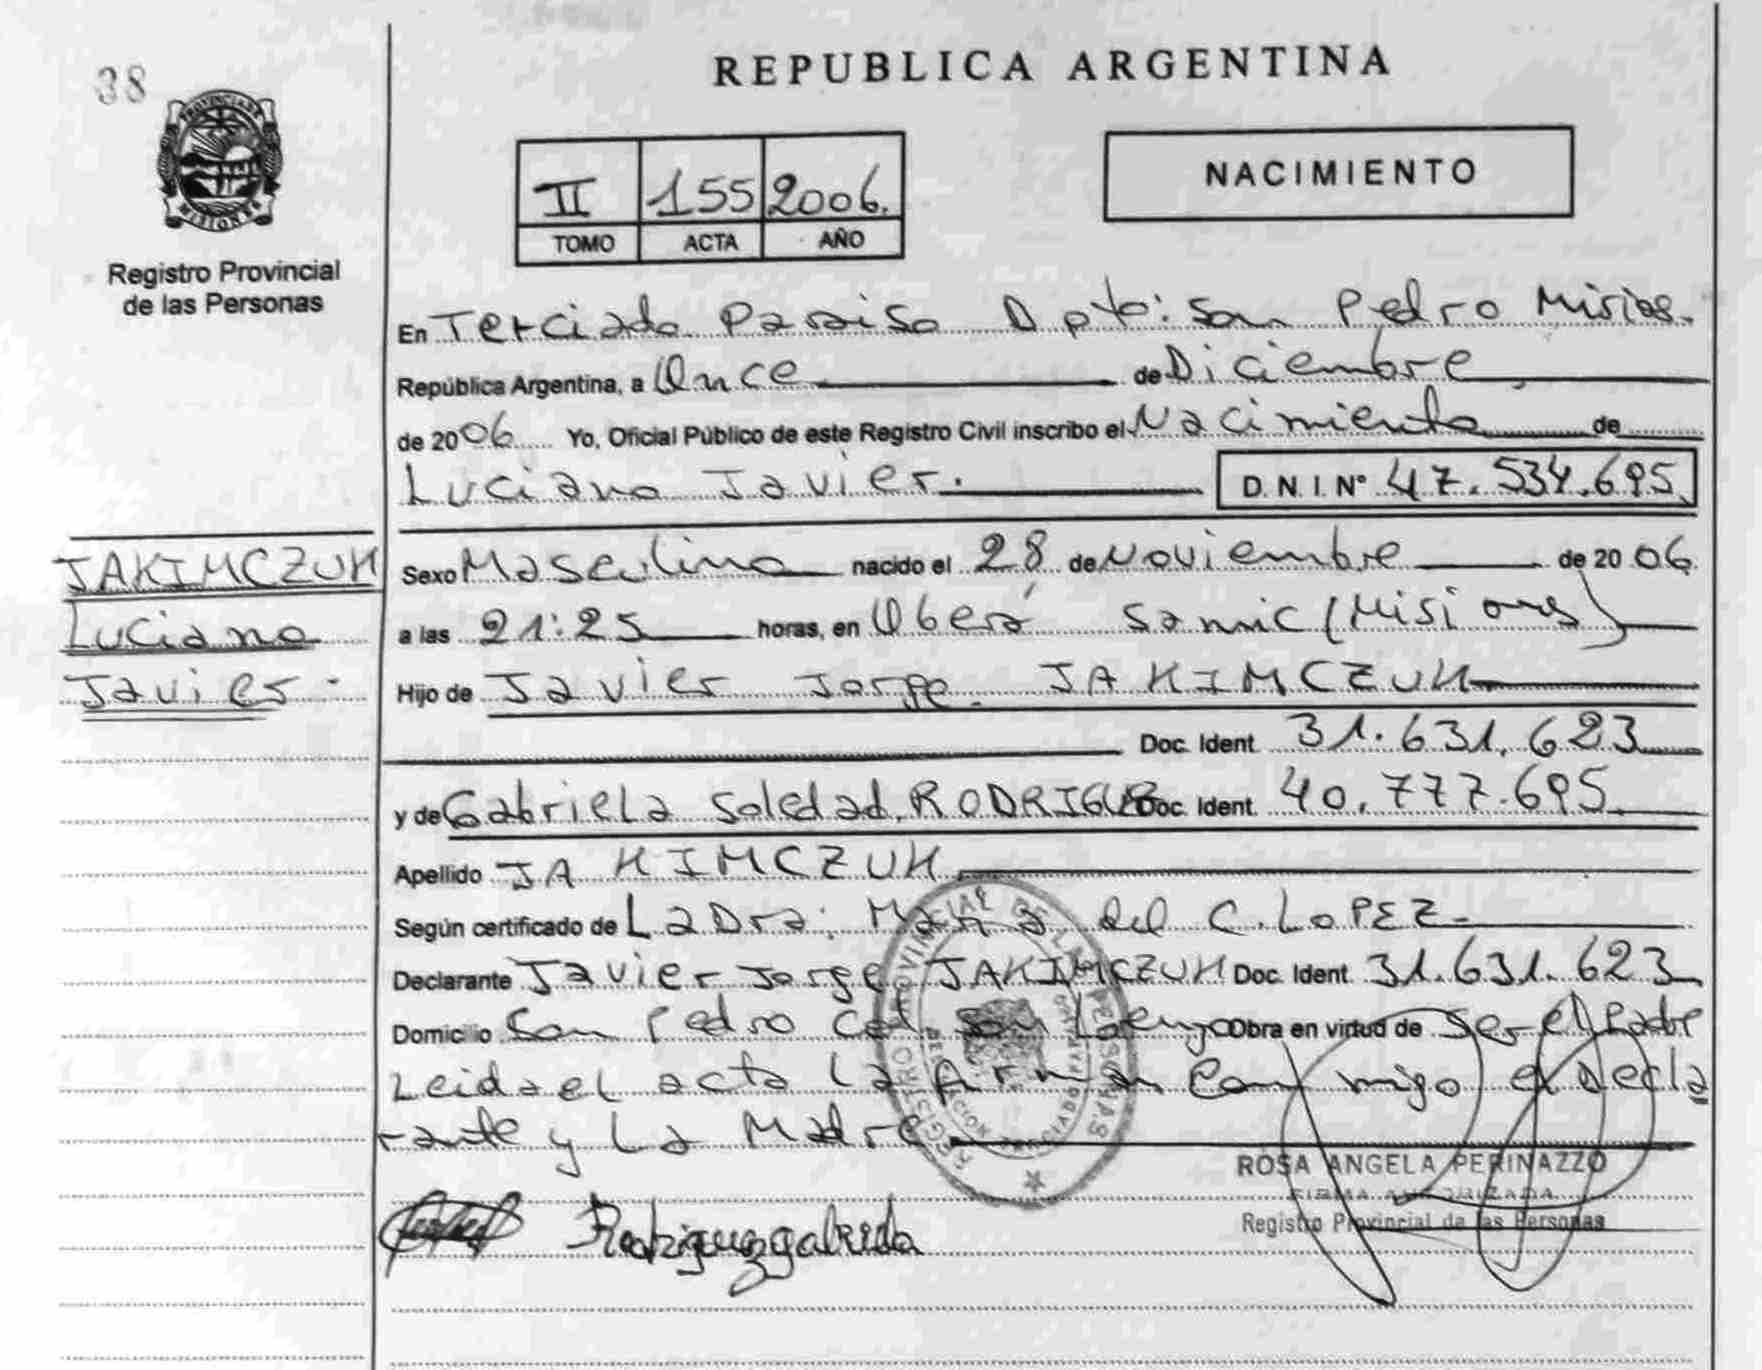 REPUBLICA ARGENTINA
38
PROVINCIA DE MISIONES
Registro Provincial
de las Personas
II 155 2006.
TOMO ACTA AÑO
NACIMIENTO
En Terciado Paraiso Dpto: San Pedro
República Argentina, a Once de Diciembre
de 2006 Yo, Oficial Público de este Registro Civil inscribo el Nacimiento de
Luciano Javier. D.N.I. N° 47.534.695
JAKIMCZUK
Luciano
Javier.
Sexo Masculino nacido el 28 de Noviembre de 2006
a las 21:25 horas, en Oberá Samic (Misiones)
Hijo de Javier Jorge JAKIMCZUK
Doc. Ident. 31.631.623
y de Gabriela Soledad RODRIGUEZ Doc. Ident. 40.777.695
Apellido JAKIMCZUK
Según certificado de La Dra: María del C. LOPEZ
Declarante Javier Jorge JAKIMCZUK Doc. Ident. 31.631.623
Domicilio San Pedro San Lorenzo Obra en virtud de Ser el Padre
Leida el acta la firman Conmigo el decla
rante y La Madre
REGISTRO PROVINCIAL DE LAS PERSONAS
ROSA ANGELA PERINAZZO
FIRMA AUTORIZADA
Registro Provincial de las Personas
Rodriguez gabriela